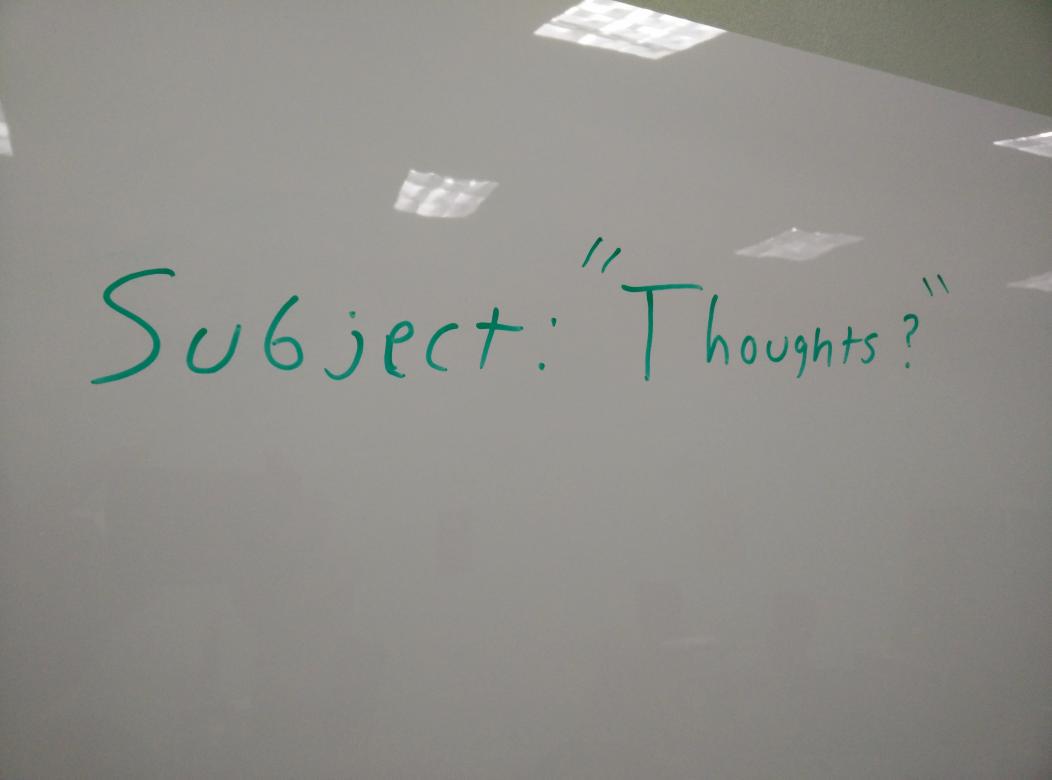 Subject: "Thoughts?"